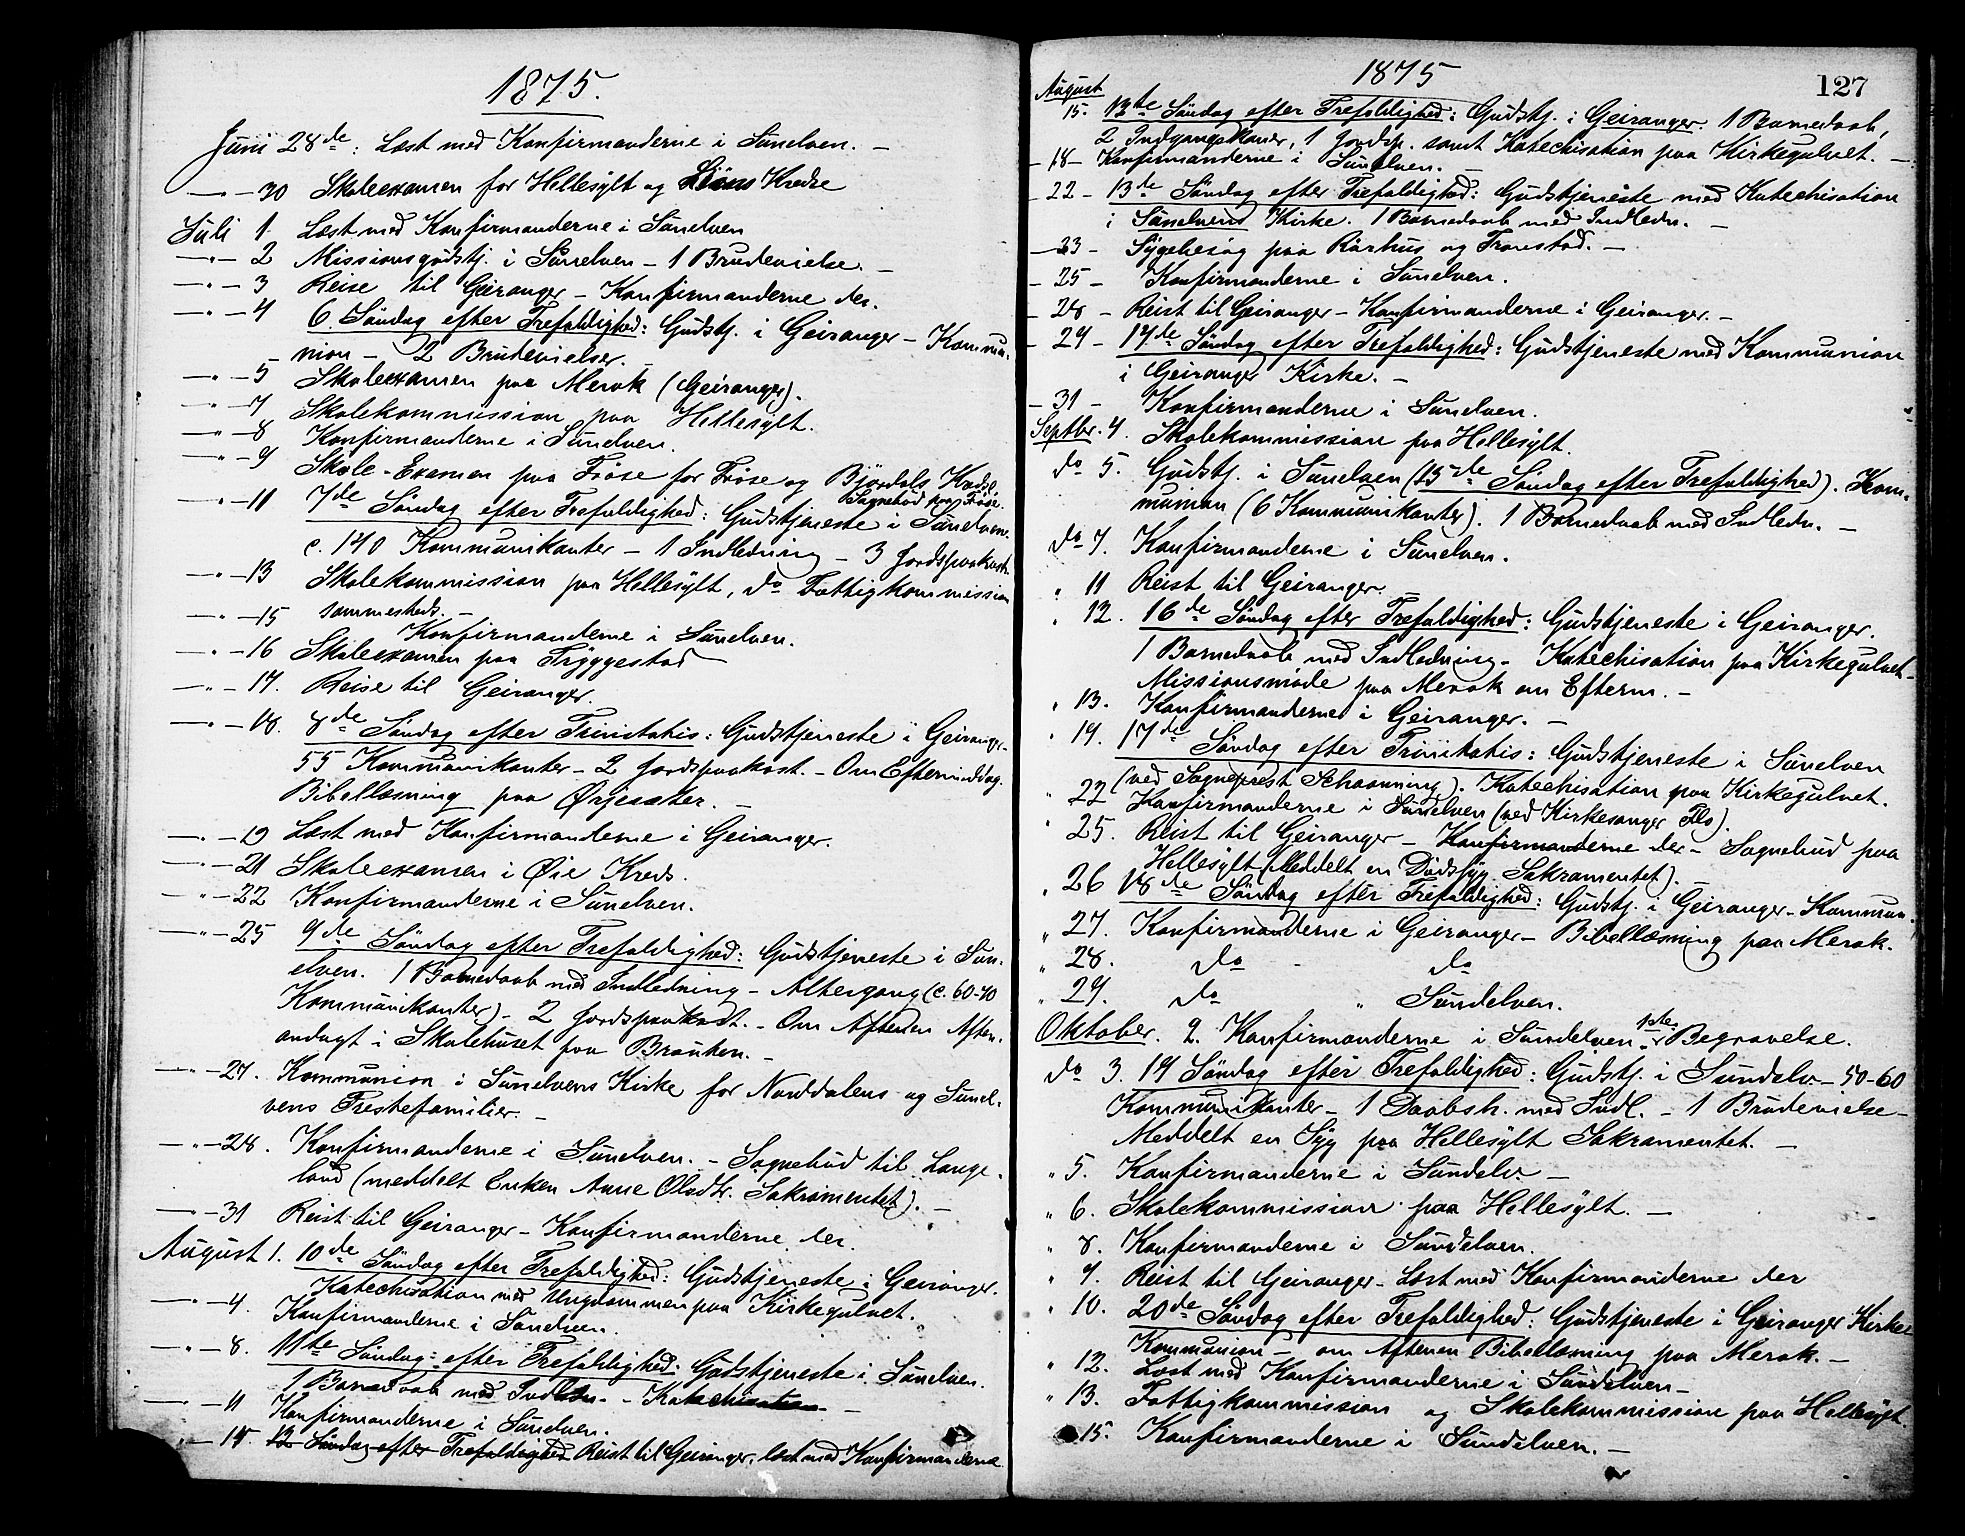 1875.
Juni 28de: Læst med Konfirmanderne i Sunelven. –
—"— 30 Skoleexamen for Hellesylt og Kredse
Juli 1. Læst med Konfirmanderne i Sunelven
—"— 2 Missionsgudstj. i Sunelven – 1 Brudevielse. –
—"— 3 Reise til Geiranger – Konfirmanderne der.
—"— 4 6. Søndag efter Trefoldighed: Gudstj. i Geiranger – Kommu-
nion – 2 Brudevielser. –
—"— 5 Skoleexamen paa Merok (Geiranger).
—"— 7 Skolekommission paa Hellesylt.
—"— 8 Konfirmanderne i Sunelven.
—"— 9 Skole-Examen paa Frøse for Frøse og Bjørdals Kreds
Sognebud paa Frøse.
—"— 11 7de Søndag efter Trefoldighed: Gudstjeneste i Sunelven.
c. 140 Kommunikanter – 1 Indledning – 3 Jordspaakast.
—"— 13 Skolekommission paa Hellesylt, do Fattigkommission
sammesteds. –
—"— 15 Konfirmanderne i Sunelven.
—"— 16 Skoleexamen paa Tryggestad
—"— 17. Reise til Geiranger.
—"— 18. 8de Søndag efter Trinitatis: Gudstjeneste i Geiranger –
55 Kommunikanter – 2 Jordspaakast. – Om Eftermiddag.
Bibellæsning paa Ørjesæter. –
—"— 19 Læst med Konfirmanderne i Geiranger.
—"— 21 Skoleexamen i Øie Kreds.
—"— 22 Konfirmanderne i Sunelven.
—"— 25 9de Søndag efter Trefoldighed: Gudstjeneste i Sun-
elven. 1 Barnedaab med Indledning – Altergang (c. 60-70
Kommunikanter) – 2 Jordspaakast. – Om Aftenen Aften-
andagt i Skolehuset paa Brauten. –
—"— 27. Kommunion i Sunelvens Kirke for Norddalens og Sunel-
vens Prestefamilier. –
—"— 28. Konfirmanderne i Sunelven. – Sognebud til Lange-
land (meddelt Enken Anne Olsdtr. Sakramentet). –
—"— 31 Reist til Geiranger – Konfirmanderne der.
August 1. 10de Søndag efter Trefoldighed: Gudstjeneste i Geiranger.
Katechisation med Ungdommen paa Kirkegulvet.
—"— 4. Konfirmanderne i Sunelven.
—"— 8. 11te Søndag efter Trefoldighed: Gudstjeneste i Sunelven.
1 Barnedaab med Indledn. – Katechisation –
—"— 11 Konfirmanderne i Sunelven.
—"— 14 12 Søndag efter Trefoldighed Reist til Geiranger, læst med Konfirmanderne
1875
127
August
15. 12te Søndag efter Trefoldighed: Gudstj. i Geiranger. 1 Barnedaab,
2 Indgangskoner, 1 Jordsp. samt Katechisation paa Kirkegulvet. –
– 18 – Konfirmanderne i Sunelven. –
– 22 – 13de Søndag efter Trefoldighed: Gudstjeneste med Katechisation
i Sunelvens Kirke. 1 Barnedaab med Indledn. –
– 23 – Sygebesøg paa Rørhus og Tronstad. –
– 25 – Konfirmanderne i Sunelven.
– 28 – Reist til Geiranger – Konfirmanderne i Geiranger. –
– 29 – 14de Søndag efter Trefoldighed: Gudstjeneste med Kommunion
i Geiranger Kirke. –
– 31 – Konfirmanderne i Sunelven.
Septbr. 4. Skolekommission paa Hellesylt.
do 5. Gudstj. i Sunelven (15de Søndag efter Trefoldighed). Kom-
munion (6 Kommunikanter). 1 Barnedaab med Indledn. –
do 7. Konfirmanderne i Sunelven.
" 11 Reist til Geiranger.
" 12. 16de Søndag efter Trefoldighed: Gudstjeneste i Geiranger.
1 Barnedaab med Indledning – Katechisation paa Kirkegulvet –
Missionsmøde paa Merok om Efterm. –
" 13. Konfirmanderne i Geiranger. –
" 19. 17de Søndag efter Trinitatis: Gudstjeneste i Sunelven
(ved Sogneprest Schaanning). Katechisation paa Kirkegulvet.
" 22 Konfirmanderne i Sunelven (ved Kirkesanger Flo).
" 25. Reist til Geiranger – Konfirmanderne der – Sognebud paa
Hellesylt (Meddelt en Dødssyg Sakramentet).
" 26 18de Søndag efter Trefoldighed: Gudstj. i Geiranger – Kommun.
" 27. Konfirmanderne i Geiranger – Bibellæsning paa Merok.
" 28. do – do
" 29. do " Sundelven.
Oktober. 2. Konfirmanderne i Sundelven – Begravelse.
do 3. 19 Søndag efter Trefoldighed: Gudstj. i Sundelv – 50-60
Kommunikanter – 1 Daabsh. med Indl. – 1 Brudevielse –
Meddelt en Syg paa Hellesylt Sakramentet. –
" 5. Konfirmanderne i Sundelv. –
" 6. Skolekommission paa Hellesylt. –
" 8. Konfirmanderne i Sundelven.
" 9. Reist til Geiranger – Læst med Konfirmanderne der
" 10. 20de Søndag efter Trefoldighed: Gudstjeneste i Geiranger Kirke
Kommunion – om Aftenen Bibellæsning paa Merok. –
" 12. Læst med Konfirmanderne i Sundelven –
" 13. Fattigkommission og Skolekommission paa Hellesylt.
15. Konfirmanderne i Sundelven. –